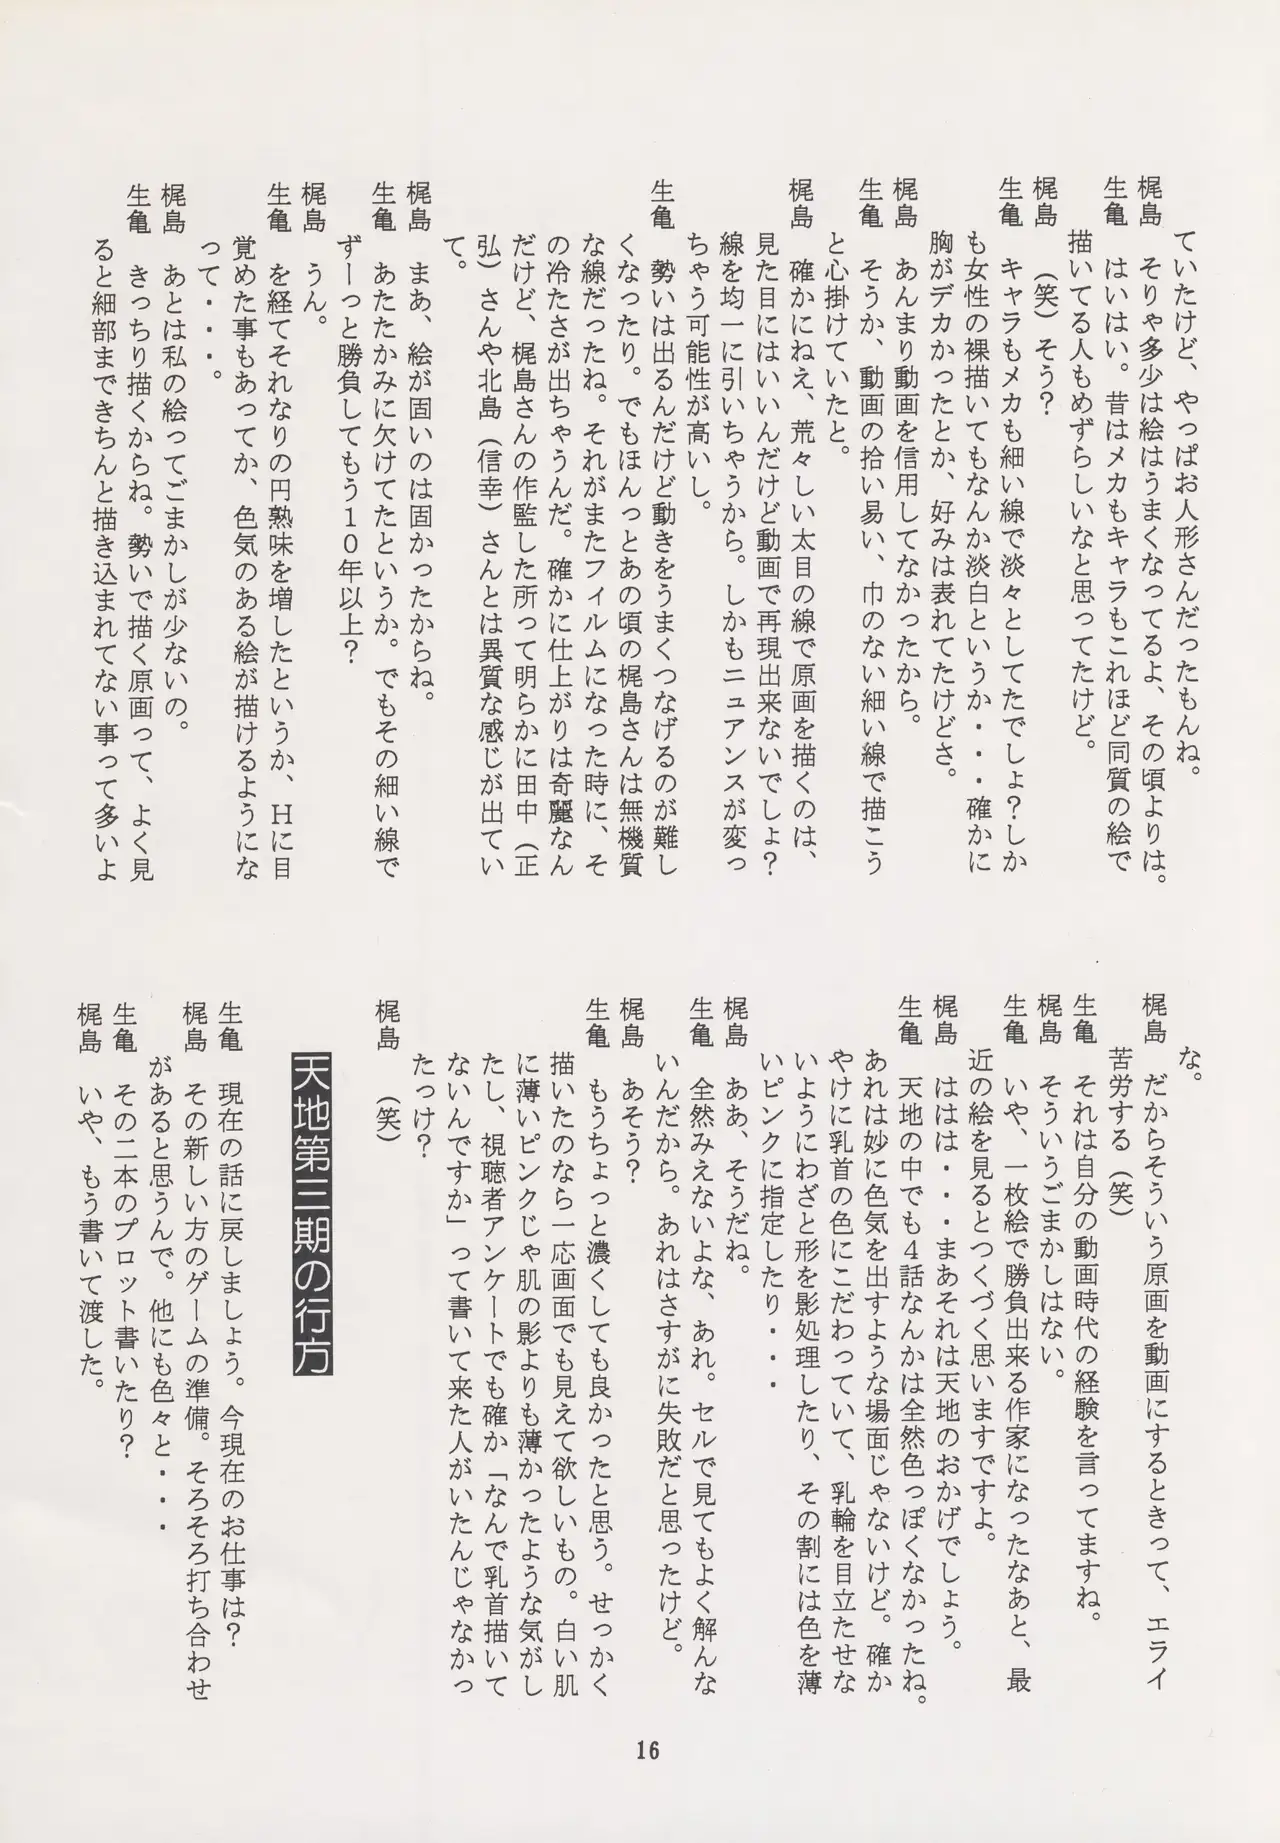 ていたけど、やっぱお人形さんだったもんね。
梶島　そりゃ多少は絵はうまくなってるよ、その頃よりは。
生亀　はいはい。昔はメカもキャラもこれほど同質の絵で
描いてる人もめずらしいなと思ってたけど。
梶島　（笑）そう？
生亀　キャラもメカも細い線で淡々としてたでしょ？しか
も女性の裸描いてもなんか淡白というか・・・確かに
胸がデカかったとか、好みは表れてたけどさ。
梶島　あんまり動画を信用してなかったから。
生亀　そうか、動画の拾い易い、巾のない細い線で描こう
と心掛けていたと。
梶島　確かにねえ、荒々しい太目の線で原画を描くのは、
見た目にはいいんだけど動画で再現出来ないでしょ？
線を均一に引いちゃうから。しかもニュアンスが変っ
ちゃう可能性が高いし。
生亀　勢いは出るんだけど動きをうまくつなげるのが難し
くなったり。でもほんっとあの頃の梶島さんは無機質
な線だったね。それがまたフィルムになった時に、そ
の冷たさが出ちゃうんだ。確かに仕上がりは奇麗なん
だけど、梶島さんの作監した所って明らかに田中（正
弘）さんや北島（信幸）さんとは異質な感じが出てい
て。
梶島　まあ、絵が固いのは固かったからね。
生亀　あたたかみに欠けてたというか。でもその細い線で
ずーっと勝負してもう１０年以上？
梶島　うん。
生亀　を経てそれなりの円熟味を増したというか、Ｈに目
覚めた事もあってか、色気のある絵が描けるようにな
って・・・。
梶島　あとは私の絵ってごまかしが少ないの。
生亀　きっちり描くからね。勢いで描く原画って、よく見
ると細部まできちんと描き込まれてない事って多いよ
な。
梶島　だからそういう原画を動画にするときって、エライ
苦労する（笑）
生亀　それは自分の動画時代の経験を言ってますね。
梶島　そういうごまかしはない。
生亀　いや、一枚絵で勝負出来る作家になったなあと、最
近の絵を見るとつくづく思いますですよ。
梶島　ははは・・・まあそれは天地のおかげでしょう。
生亀　天地の中でも４話なんかは全然色っぽくなかったね。
あれは妙に色気を出すような場面じゃないけど。確か
やけに乳首の色にこだわっていて、乳輪を目立たせな
いようにわざと形を影処理したり、その割には色を薄
いピンクに指定したり・・・
梶島　ああ、そうだね。
生亀　全然みえないよな、あれ。セルで見てもよく解んな
いんだから。あれはさすがに失敗だと思ったけど。
梶島　あそう？
生亀　もうちょっと濃くしても良かったと思う。せっかく
描いたのなら一応画面でも見えて欲しいもの。白い肌
に薄いピンクじゃ肌の影よりも薄かったような気がし
たし、視聴者アンケートでも確か「なんで乳首描いて
ないんですか」って書いて来た人がいたんじゃなかっ
たっけ？
梶島　（笑）
天地第三期の行方
生亀　現在の話に戻しましょう。今現在のお仕事は？
梶島　その新しい方のゲームの準備。そろそろ打ち合わせ
があると思うんで。他にも色々と・・・
生亀　その二本のプロット書いたり？
梶島　いや、もう書いて渡した。
16